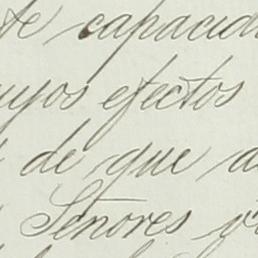 te capacida
uyos efectos
de que a
Señores